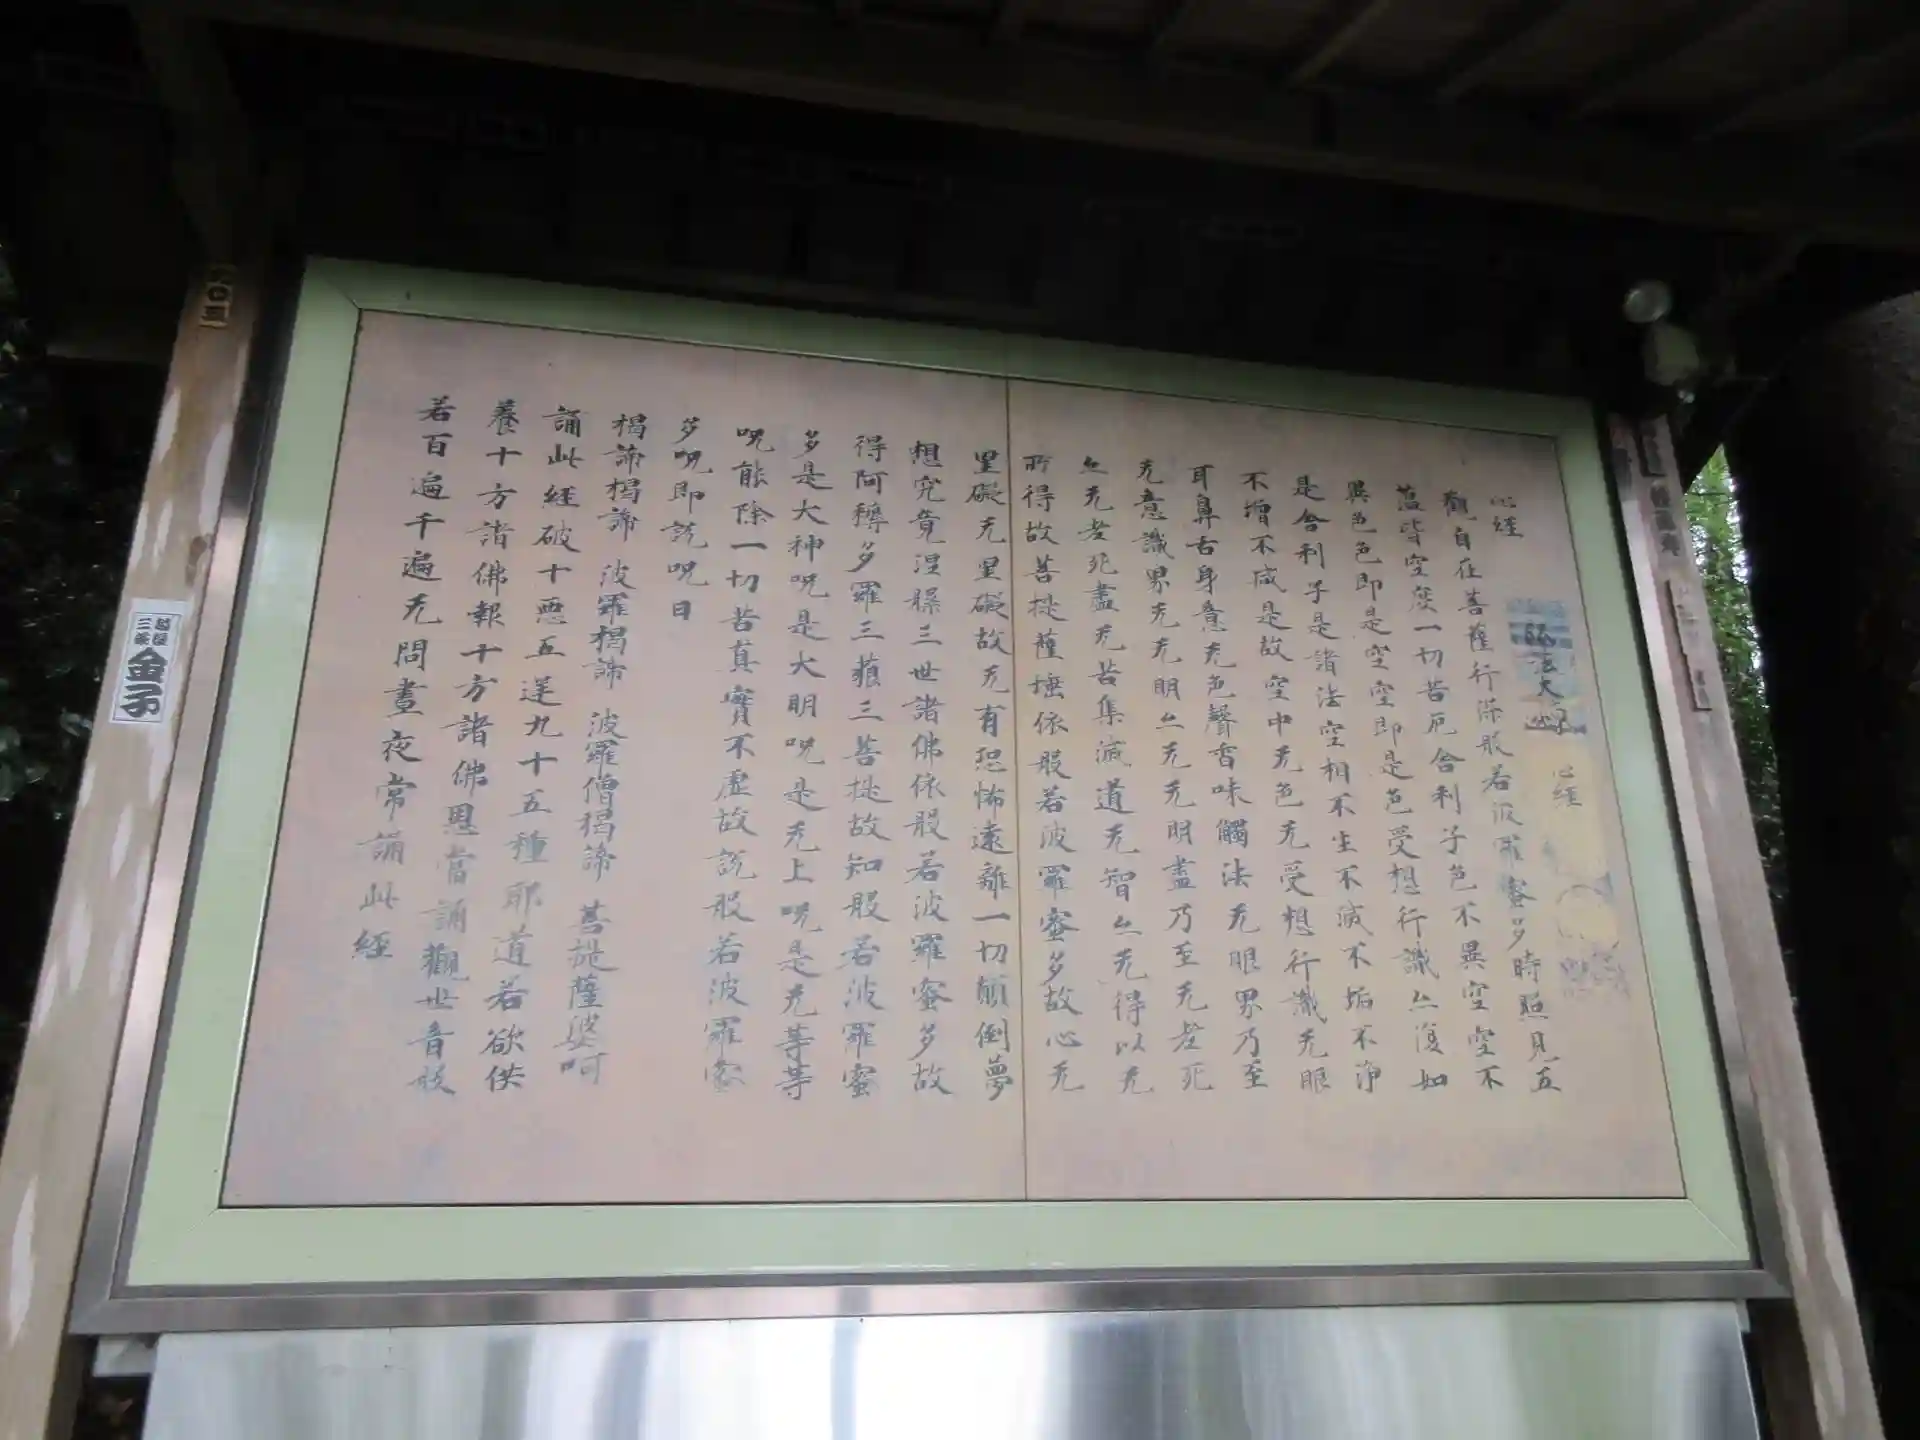 心経
觀自在菩薩行深般若波羅蜜多時照見五
蘊皆空度一切苦厄舎利子色不異空空不
異色色即是空空即是色受想行識亦復如
是舎利子是諸法空相不生不滅不垢不浄
不増不減是故空中无色无受想行識无眼
耳鼻舌身意无色聲香味觸法无眼界乃至
无意識界无无明亦无无明盡乃至无老死
亦无老死盡无苦集滅道无智亦无得以无
所得故菩提薩埵依般若波羅蜜多故心无
罣礙无罣礙故无有恐怖遠離一切顛倒夢
想究竟涅槃三世諸佛依般若波羅蜜多故
得阿耨多羅三藐三菩提故知般若波羅蜜
多是大神呪是大明呪是无上呪是无等等
呪能除一切苦真實不虚故説般若波羅蜜
多呪即説呪曰
揭諦揭諦 波羅揭諦 波羅僧揭諦 菩提薩婆呵
誦此経破十悪五逆九十五種耶道若欲供
養十方諸佛報十方諸佛恩當誦觀世音般
若百遍千遍无問晝夜常誦此経
弘法大師
心経
三条
金子